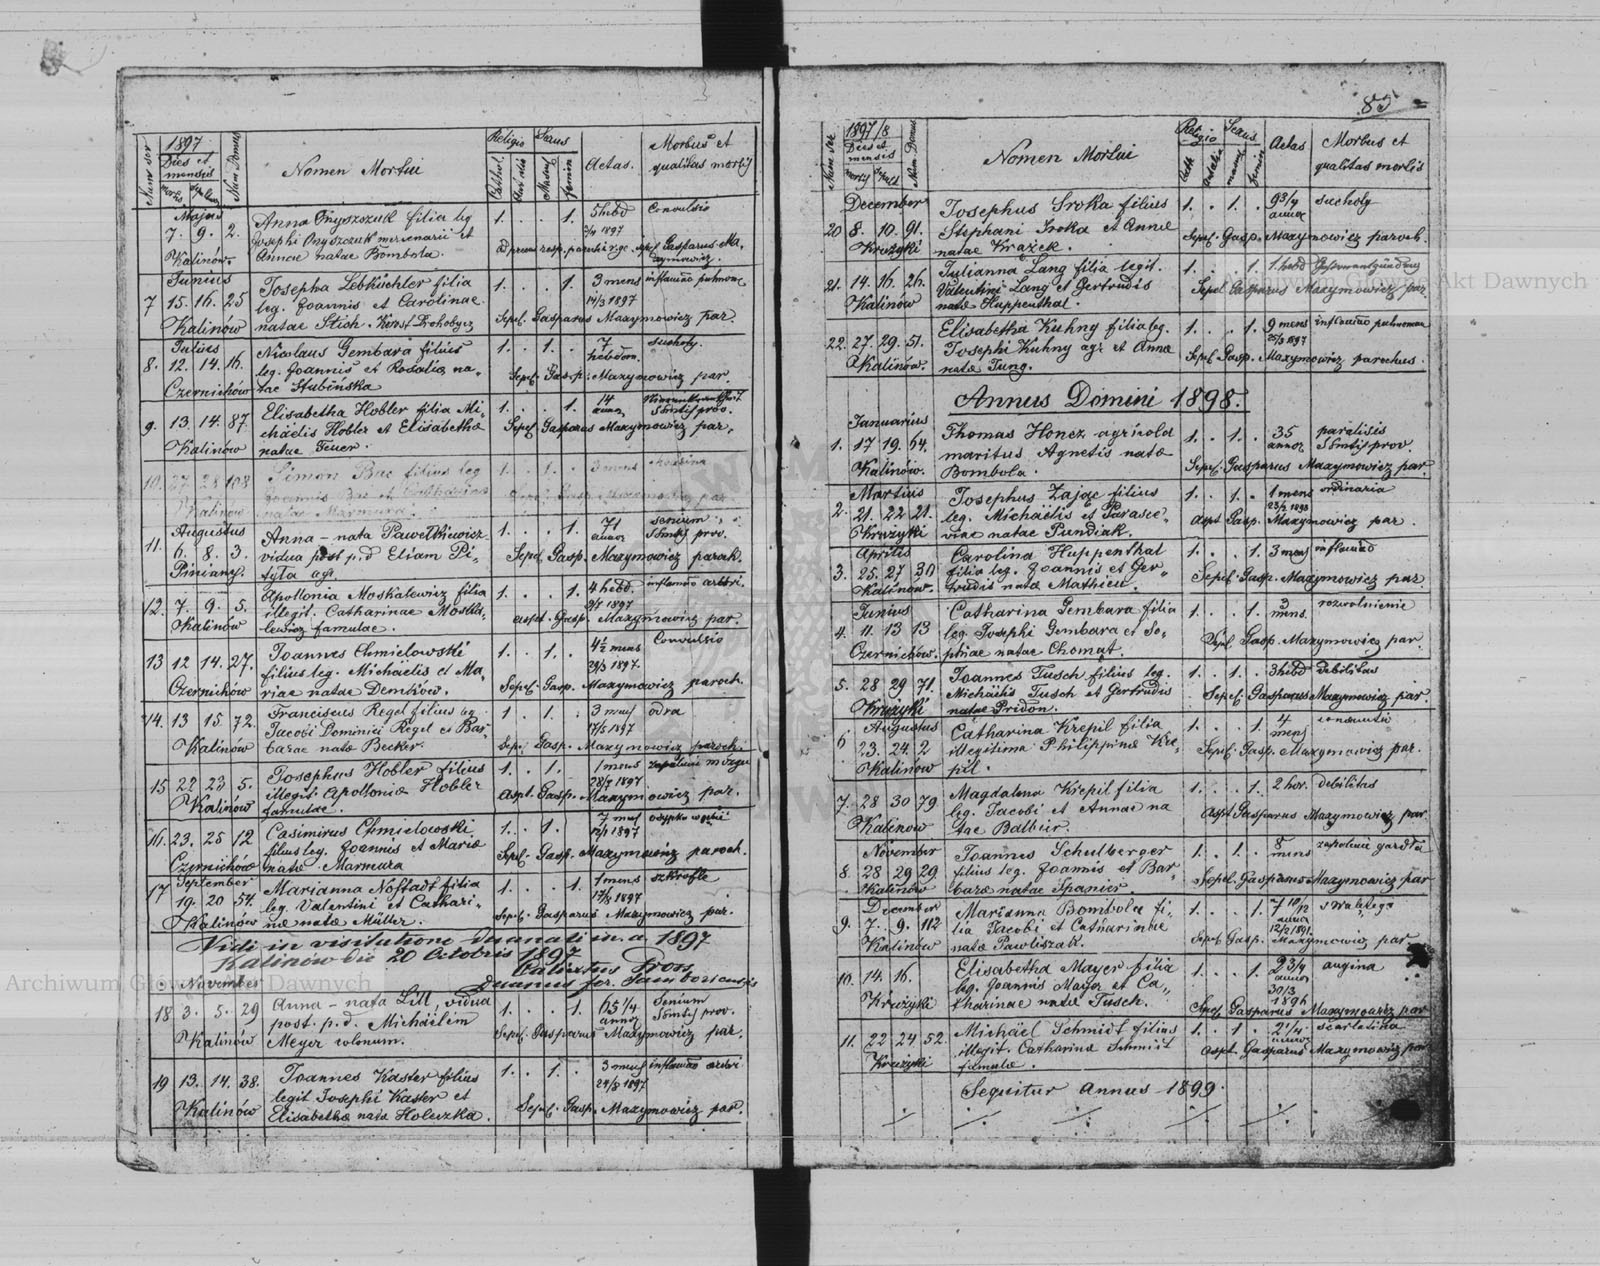 1897
Num ser
Dies et
mensis
mortis
sepultur
Num Domus
Nomen Mortui
Religio
Sexus
Cathol.
Aut alia
Mascul
femin
Aetas.
Morbus et
qualitas mortis
Majus
7. 9. 2.
Kalinów.
Anna Onyszczuk filia leg
Josephi Onyszczuk mercenarii et
Annae natae Bombola.
1. . . 1.
5 hebd
1897
Convulsio
Gasparus Ma,
xymowicz.
Junius
7 15. 16. 25
Kalinów
Josepha Lebküchler filia
leg. Joannis et Carolinae
natae Stich.
1. . . 1
3 mens
14/3 1897
inflamao pulmon
Sepel. Gasparus Maxymowicz par.
Julius
8. 12. 14. 16.
Czernichów
Nicolaus Gembara filius
leg. Joannis et Rosaliae na,
tae Hubeńska
1. . 1. .
7
hebdom.
suchoty.
Sepel. Gasp. Maxymowicz par.
9. 13. 14. 87.
Kalinów
Elisabetha Hobler filia Mi,
chäelis Hobler et Elisabethae
natae Feuer.
1. . . 1.
14
annor
Sśmtis prov.
Sepel. Gasparus Maxymowicz par.
10. 27 28 108
Kalinów
Simon Bac filius leg
Joannis Bac et Catharinae
natae Marmura.
1. . 1. .
3 mens
Augustus
11. 6. 8. 3.
Pinianny.
Anna - nata Pawełkiewicz
vidua post p. d Eliam Pi,
tyła agr.
1. . . 1.
71
annor
senium
Sśmtis prov.
Sepel. Gasp. Maxymowicz paroch.
12. 7. 9. 5.
Kalinów
Apollonia Moskalewicz filia
illegit. Catharinae Moska,
lewicz famulae.
1. . . 1
4 hebd.
1897
aspt. Gasp. Maxymowicz par.
13 12 14. 27.
Czernichów
Joannes Chmielowski
filius leg. Michäelis et Ma,
riae natae Demków.
1. . 1.
4½ mens
29/3 1897.
Convulsio
Sepel. Gasp. Maxymowicz paroch.
14. 13 15. 72.
Kalinów
Franciscus Regel filius leg
Jacobi Dominici Regel et Bar,
barae natae Becker.
1. . 1.
3 mens
1897
odra
Sepel. Gasp. Maxymowicz paroch.
15 22 23 5.
Kalinów
Josephus Hobler filius
illegit. Apolloniae Hobler
famulae.
1. . 1.
1 mens
1897
zapalenie mózgu
Aspt. Gasp. Maxymowicz par.
16. 23. 25 12
Czernichów
Casimirus Chmielowski
filius leg. Joannis et Mariae
natae Marmura
1. . 1.
7 mens
1897
Sepel. Gasp. Maxymowicz paroch.
September
17 19. 20 54.
Kalinów
Marianna Nofstadt filia
leg. Valentini et Cathari,
nae natae Müller.
1. . . 1
1 mens
1897
szkrofle
Sepel. Gasparus Maxymowicz par.
Vidi in visitatione decanali in. a. 1897
Kalinów die 20 Octobris 1897
November
18 3. 5. 29
Kalinów
Anna - nata Lill, vidua
post. p. d. Michäelim
Meyer colonum.
1. . . 1.
65 1/4
annor
Senium
Sśmtis prov.
Sepel. Gasparus Maxymowicz par.
19 13. 14. 38.
Kalinów
Joannes Kaster filius
legit Josephi Kaster et
Elisabethae nata Holeczka.
1. . 1.
3 mens
24/8 1897
Sepel. Gasp. Maxymowicz par.
85
1897/8
Num Ser
Dies et
mensis
Num Domus
Nomen Mortui
Religio
Sexus
Aetas
Morbus et
qualitas mortis
December
20 8. 10. 91.
Krużyki
Josephus Sroka filius
Stephani Sroka et Annae
natae Krażek.
1. . 1. .
9 3/4
annor
suchoty
Sepel. Gasp. Maxymowicz paroch.
21. 14. 16. 26.
Kalinów
Julianna Lang filia legit.
Valentini Lang et Gertrudis
natae Huppenthal.
1. . . 1.
1. hebd
Sepel Gasparus Maxymowicz par.
22. 27. 29. 51.
Kalinów.
Elisabetha Kuhny filia leg.
Josephi Kuhny agr et Annae
natae Jung.
1. . . 1.
9 mens
25/3 1897
inflamao pulmonum
Sepel. Gasp. Maxymowicz parochus.
Annus Domini 1898.
Januarius
1. 17 19. 64.
Kalinów.
Thomas Honcz agricola
maritus Agnetis natae
Bombola.
1. . 1.
35
annor
paralisis
Sśmtis prov.
Sepel. Gasparus Maxymowicz par.
Martius
2. 21. 22. 21.
Krużyki
Josephus Zając filius
leg. Michäelis et Parasce,
viae natae Pundiak.
1. . 1.
1 mens
1898
ordinaria
Aspt. Gasp. Maxymowicz par.
Aprilis
3. 25. 27 30
Kalinów.
Carolina Huppenthal
filia leg. Joannis et Ger,
trudis natae Mathieu.
1. . . 1.
3 mens
inflamao
Sepel. Gasp. Maxymowicz par.
Junius
4. 11. 13 13
Czernichów.
Catharina Gembara filia
leg. Josephi Gembara et So,
phiae natae Chomat.
1. . . 1.
3
mens.
rozwolnienie
Sepel. Gasp. Maxymowicz par.
5. 28 29 71.
Krużyki
Joannes Tusch filius leg.
Michäelis Tusch et Gertrudis
natae Pridon.
1. . 1.
3 hebd
debilitas
Sepel. Gasparus Maxymowicz par.
Augustus
6 23. 24. 2
Kalinów
Catharina Krepil filia
illegitima Philippinae Kre,
pil.
1. . . 1
4
mens
Sepel. Gasp. Maxymowicz par.
7. 28 30 79
Kalinow
Magdalena Krepil filia
leg. Jacobi et Annae na
tae Balbier.
1. . . 1.
2 hor.
debilitas
Aspt Gasparus Maxymowicz par.
November
8. 28 29 29
Kalinów
Joannes Schulberger
filius leg. Joannis et Bar,
barae natae Spanier.
1. . 1. .
8
mens
zapalenie gardła
Sepel. Gasparus Maxymowicz par
December
9. 7. . 9. 112
Kalinów
Marianna Bombola fi,
lia Jacobi et Catharinae
natae Pawliszak.
1. . . 1.
7 10/12
annor
1891.
Sepel. Gasp. Maxymowicz par
10. 14. 16.
Krużyki
Elisabetha Mayer filia
leg. Joannis Mayer et Ca,
tharinae natae Tusch.
1. . . 1.
2 3/4
annor
30/3
1896
angina
Sepel Gasparus Maxymowicz par
11. 22 24 52.
Krużyki
Michäel Schmidt filius
illegit. Catharinae Schmidt
famulae.
1. . 1.
2 1/4
annor
scarlatina
Aspt. Gasparus Maxymowicz par
Sequitur Annus 1899.
Archiwum Główne Akt Dawnych
Archiwum Główne Akt Dawnych